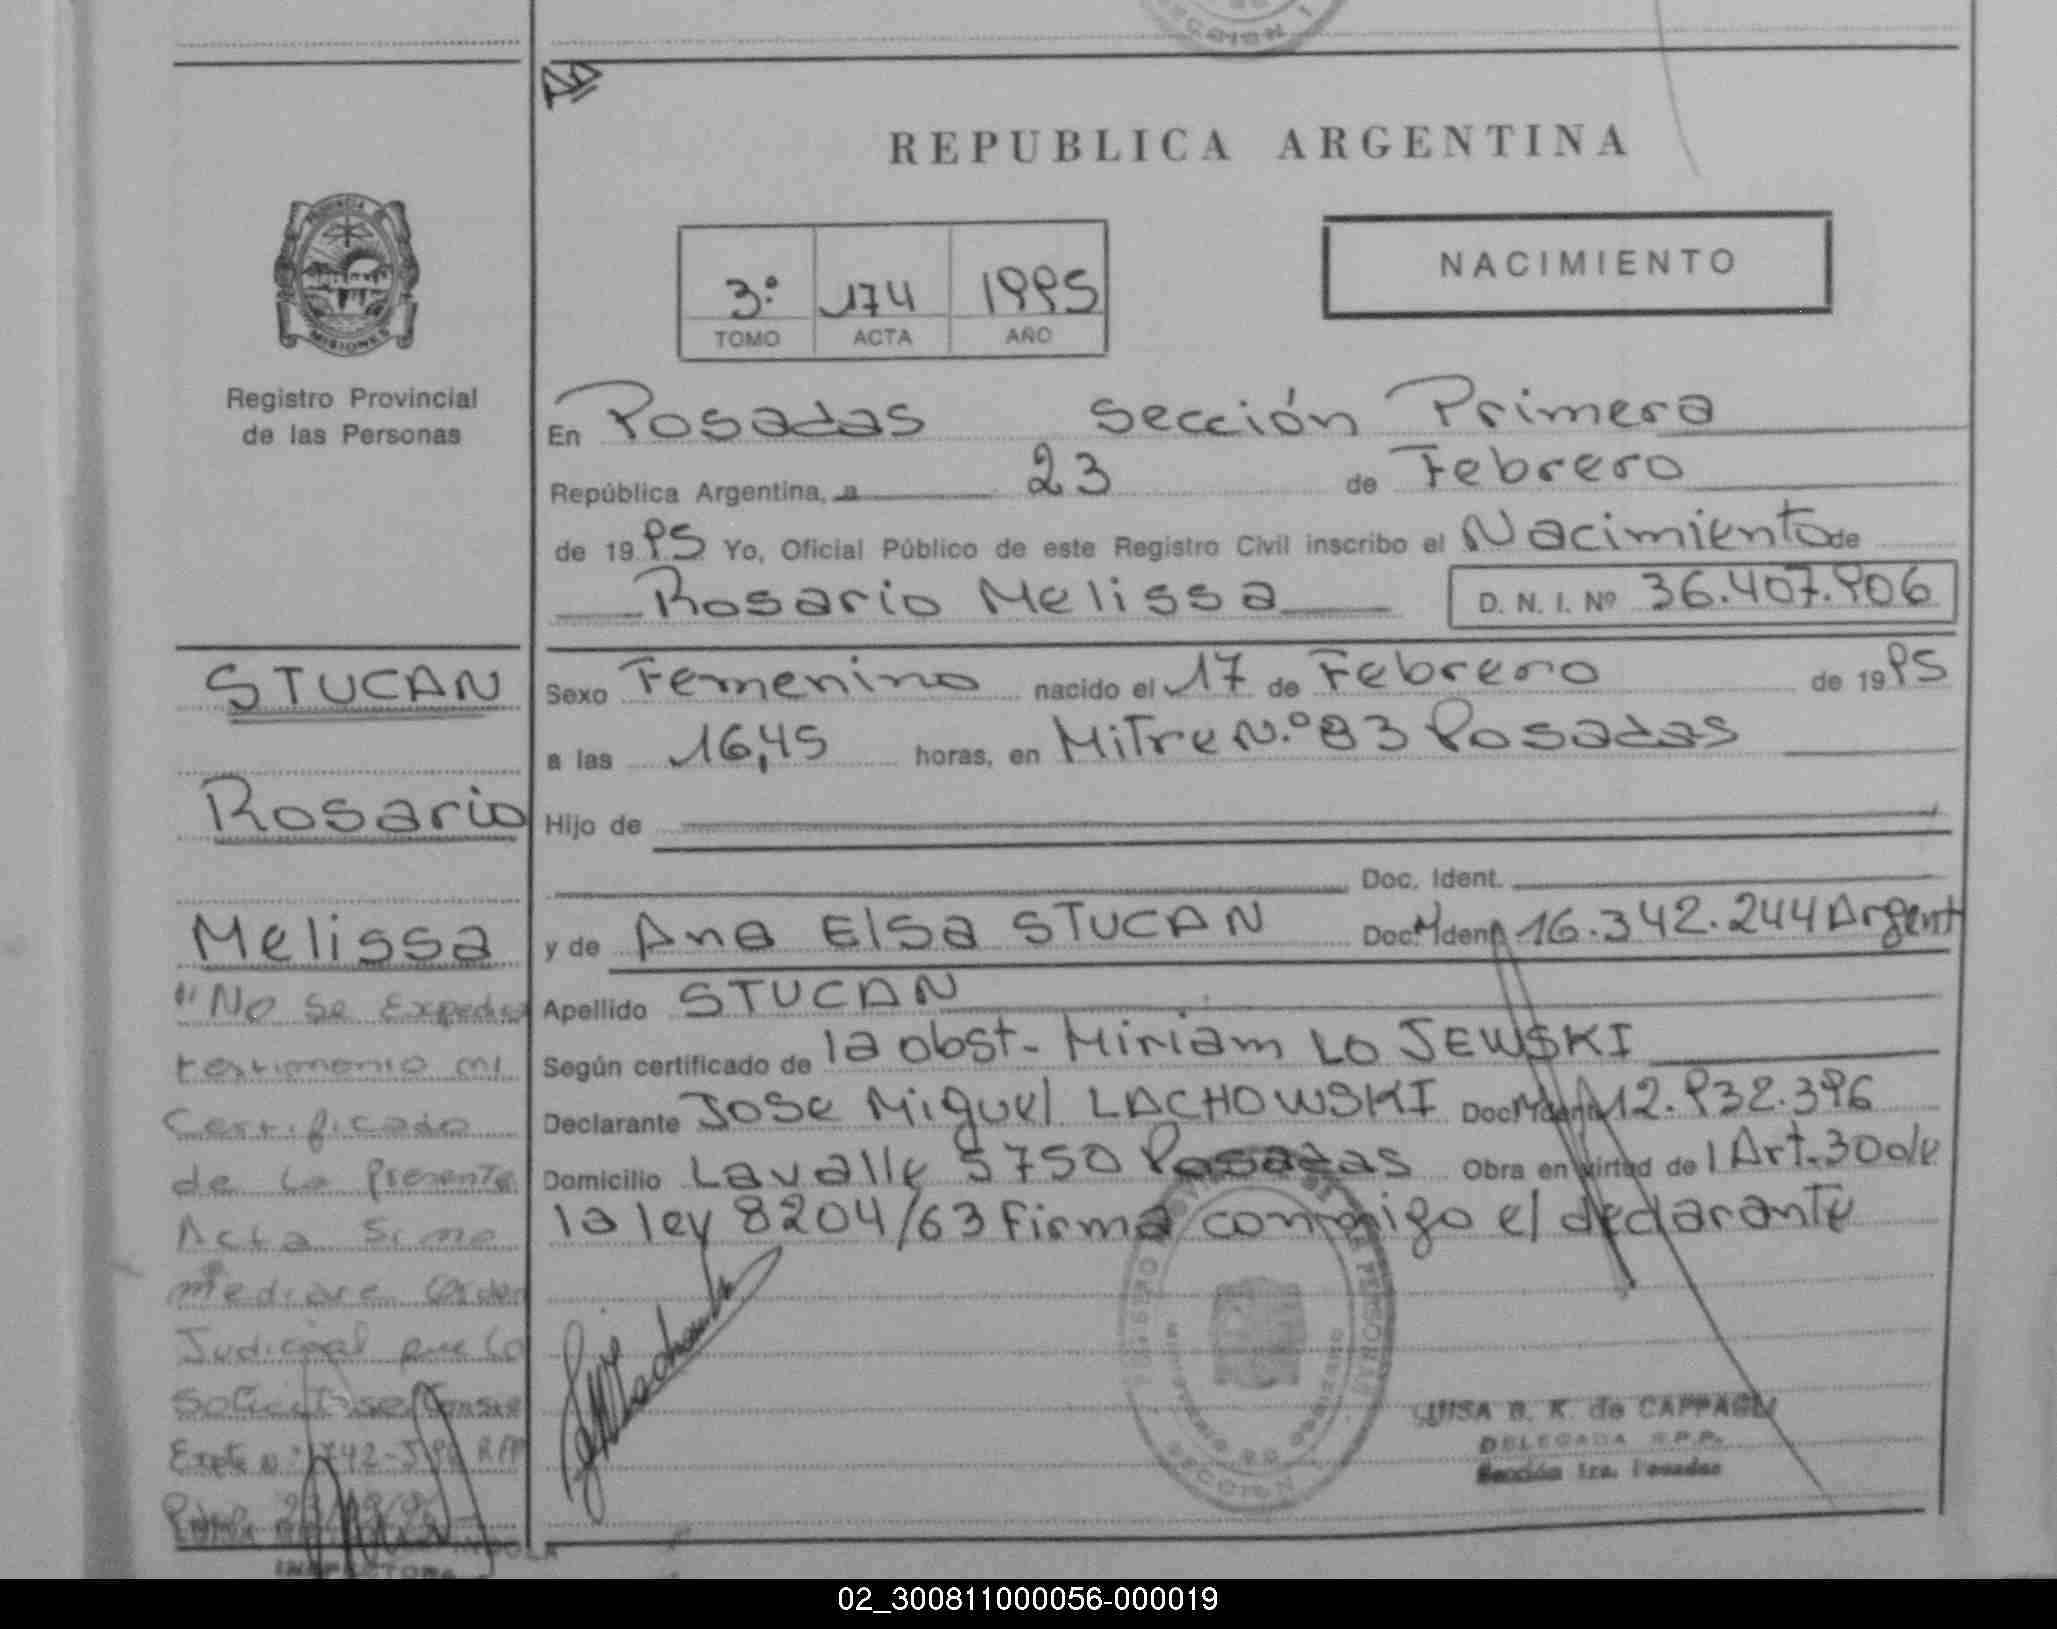 REPUBLICA ARGENTINA
NACIMIENTO
3º 174 1995
TOMO ACTA AÑO
PROVINCIA DE
MISIONES
Registro Provincial
de las Personas
En Posadas Sección Primera
República Argentina, a 23 de Febrero
de 1995 Yo, Oficial Público de este Registro Civil inscribo el Nacimiento de
Rosario Melissa D. N. I. Nº 36.407.906
STUCAN
Rosario
Melissa
Sexo Femenino nacido el 17 de Febrero de 1995
a las 16,45 horas, en Mitre N.º 83 Posadas
Hijo de
Doc. Ident.
y de Ana Elsa STUCAN Doc. Ident. 16.342.244 Argent
Apellido STUCAN
Según certificado de la obst- Miriam LO JEWSKI
Declarante Jose Miguel LACHOWSKI Doc. Ident. 12.932.396
Domicilio Lavalle 5750 Posadas Obra en virtud de l Art. 30 de
la ley 8204/63 Firma conmigo el declarante
"No se Expedira
testimonio ni
Certificado
de la presente
Acta si no
mediare Orden
Judicial que lo
solicitase
Expte n: 1742-
REGISTRO PROVINCIAL DE LAS PERSONAS
MINISTERIO DE GOBIERNO
SECCION 1
LUISA B. K. de CAPPAGLI
DELEGADA R.P.P.
Sección 1ra. Posadas
INSPECTORA
SECCION 1
02_300811000056-000019